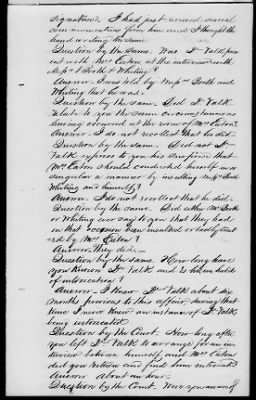 signature. I had just received several
communications from him and I thought the
hand writing the same.
Question by the same. Was Dr Valk, pres
ent with Mrs Eaton at the interview with
Mess Booth & Whiting?
Answer. I was told by Messrs Booth and
Whiting that he was.
Question by the same. Did Dr Valk
relate to you the same circumstances as
having occurred at the room of Mrs Eaton?
Answer. I do not recollect that he did.
Question by the same. Did not Dr
Valk express to you his surprise that
Mrs Eaton should conducted herself in so
singular a manner by insulting Messrs Booth
Whiting and himself?
Answer. I do not recollect that he did.
Question by the same. Did either Mr Booth
or Whiting ever say to you that they had
on that occasion been insulted or badly treat
ed by Mrs Eaton?
Answer. They did.
Question by the same. How long have
you known Dr Valk and is he in habits
of intoxication?
Answer. I knew Dr Valk about six
months previous to this affair, during that
time I never knew an instance of Dr Valk
being intoxicated.
Question by the Court. How long after
you left Dr Valk to arrange for an in
terview between himself and Mrs Eaton
did you return and find him intoxicated
Answer about an hour.
Question by the Court. Was you aware of